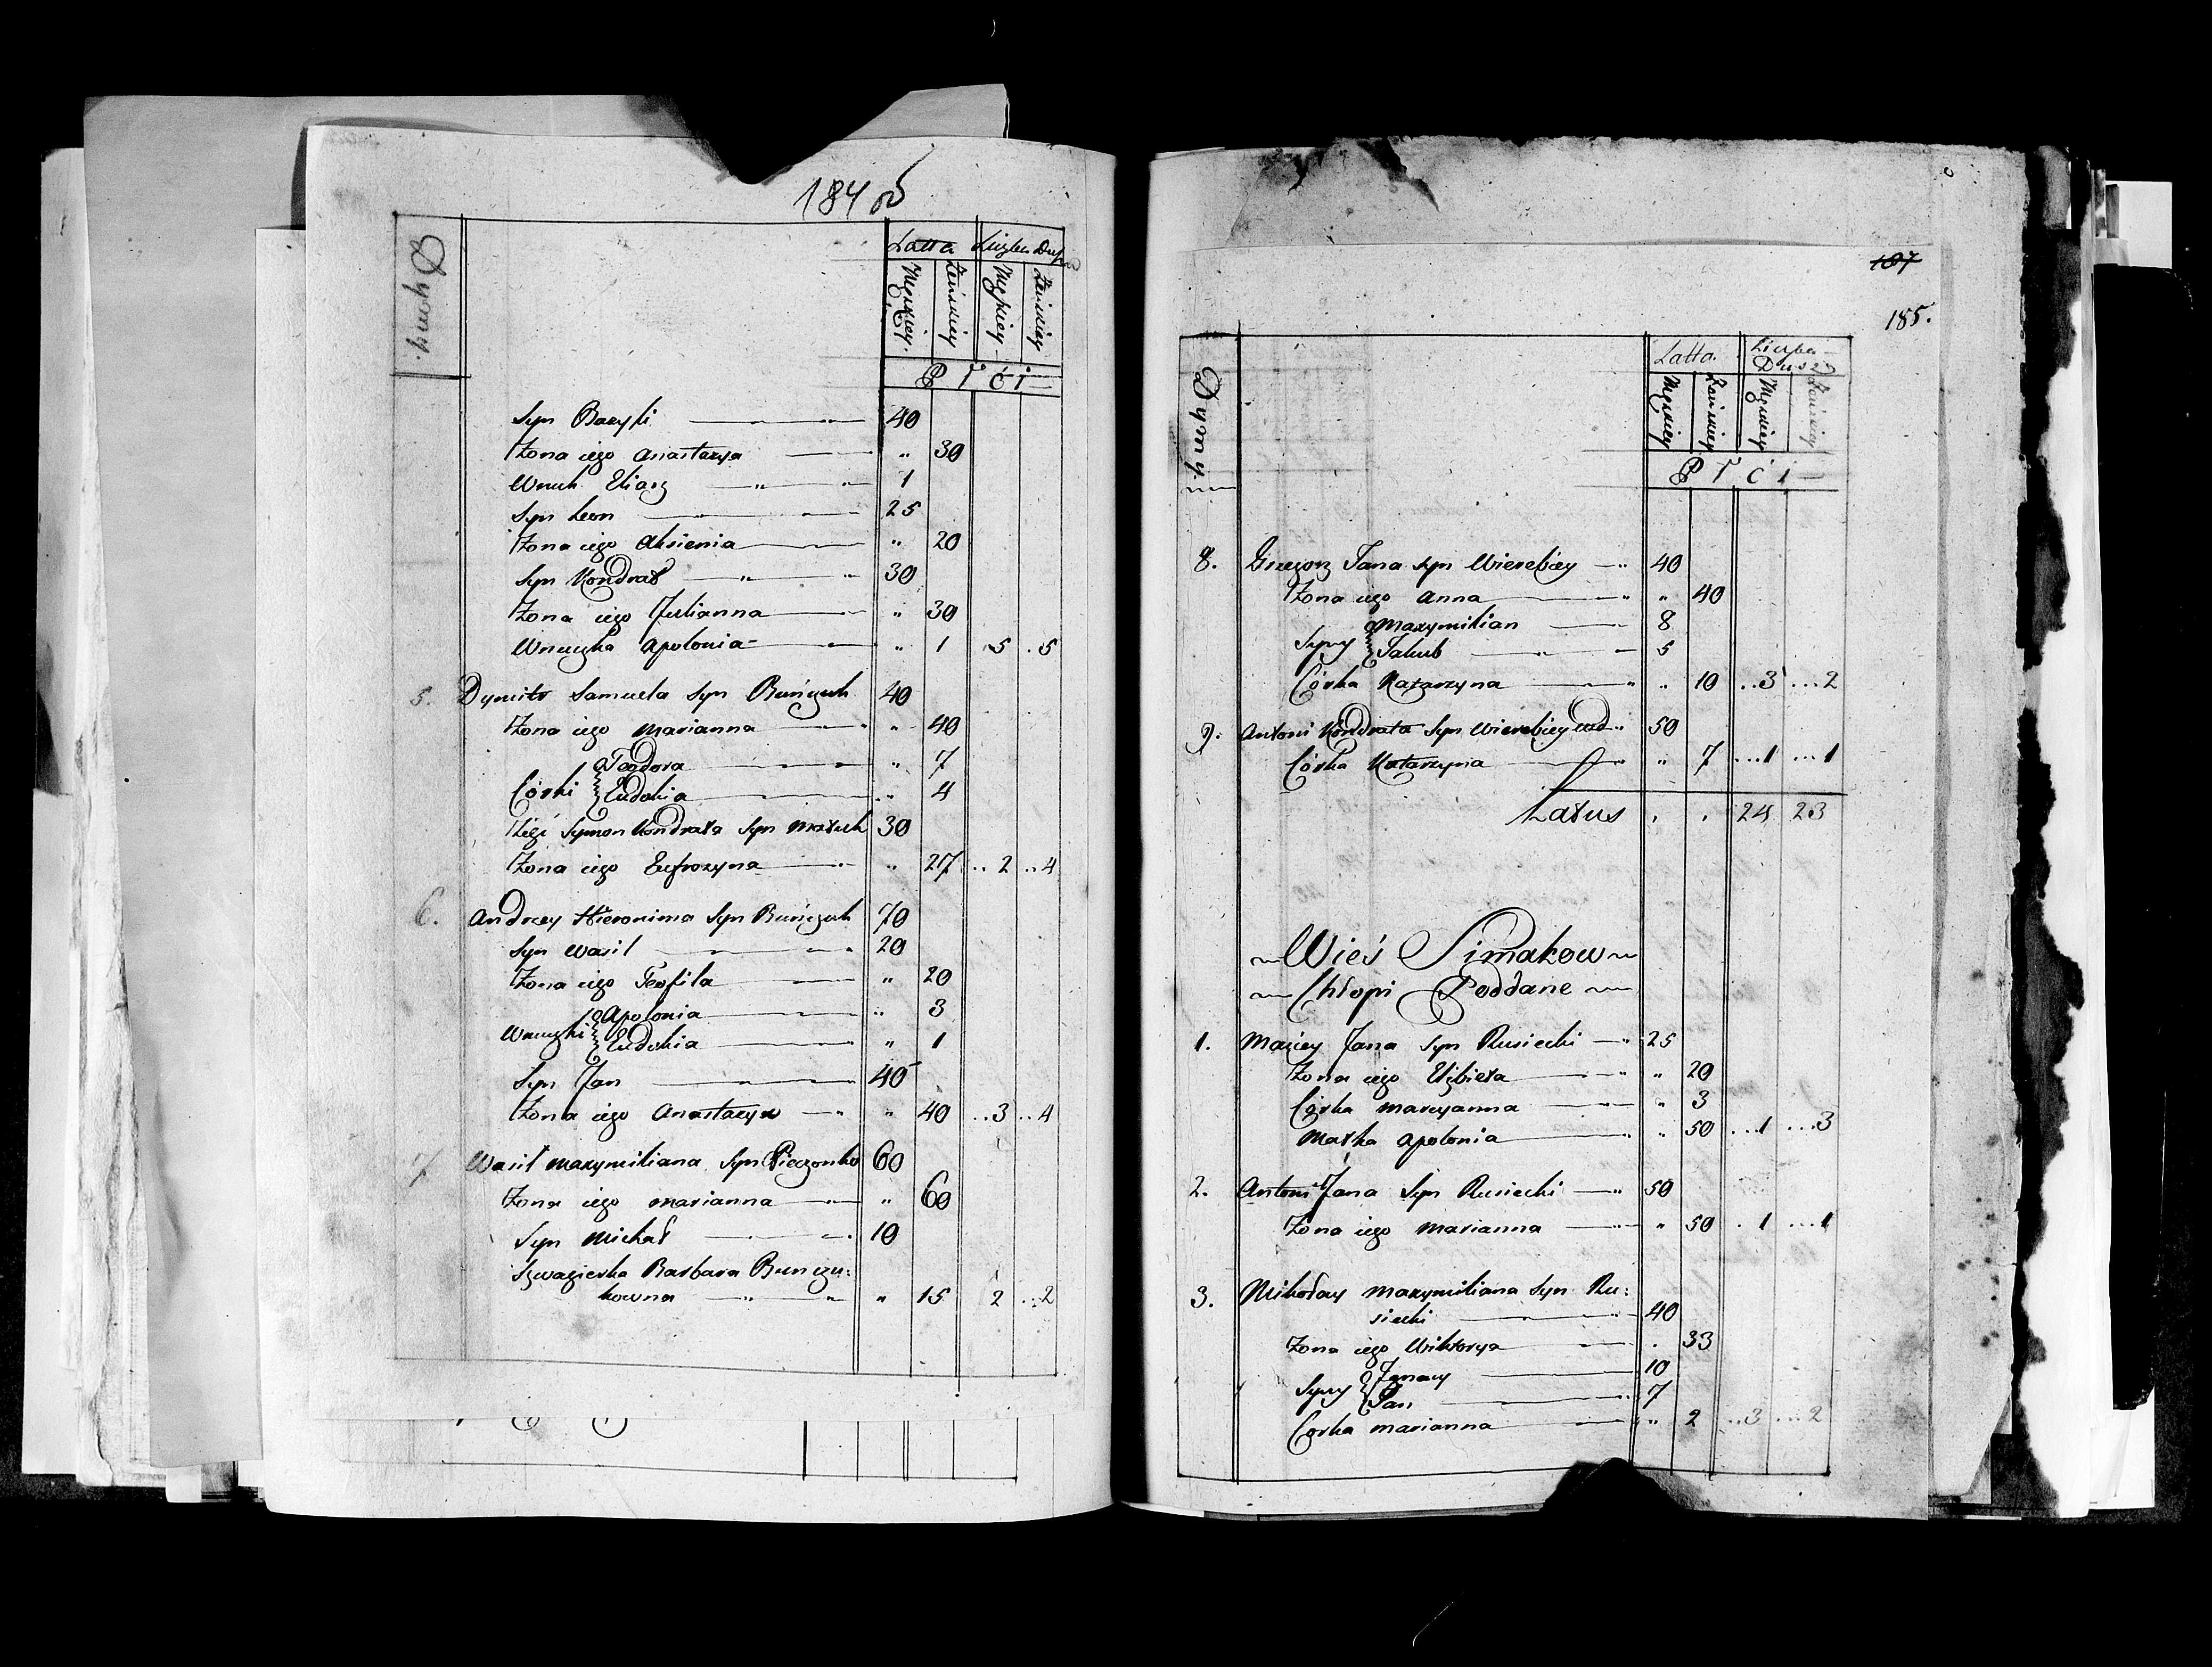 184 об
Dymy.
Latta Liczba Dusz
Męzkiey. Żeńskiey Męzkiey Żeńskiey
Płci
Syn Bazyli 40
Żona iego Anastazya " 30
Wnuk Eliasz 1
Syn Leon 25
Żona iego Aksienia " 20
Syn Kondrat 30
Żona iego Julianna " 30
Wnuczka Apolonia " 1 ..5 ..5
5. Dymitr Samuela Syn Buńczuk 40
Żona iego Marianna " 40
Córki Teodora " 7
Eudokia " 4
Zięć Symon Kondrata Syn Matuk 30
Żona iego Eufrozyna " 27 ..2 ..4
6. Andrzey Hieronima Syn Buńczuk 70
Syn Wasil 20
Żona iego Teofila " 20
Wnuczki Apolonia " 3
Eudokia " 1
Syn Jan 40
Żona iego Anastazya " 40 ..3 ..4
7 Wasil Maxymiliana Syn Pieczonko 60
Żona iego Marianna " 60
Syn Michał 10
Szwagierka Barbara Bunczu:
kowna " 15 2 ..2
187
185.
Dymy.
Latta. Liczba Dusz
Męzkiey Żeńskiey Męzkiey Żeńskiey
Płci
8. Grzegorz Jana Syn Wierebiey 40
Żona iego Anna " 40
Syny Maxymilian 8
Jakub 5
Córka Katarzyna " 10 ..3 ...2
9. Antoni Kondrata Syn Wierebiey wd 50
Córka Katarzyna " 7 ...1 ...1
Latus . . 24 23
Wieś Simakow
Chłopi Poddane
1. Maciey Jana Syn Rusiecki 25
Żona iego Elżbieta " 20
Córka Maryanna " 3
Matka Apolonia " 50 ...1 ...3
2. Antoni Jana Syn Rusiecki 50
Żona iego Marianna " 50 .1 ...1
3. Mikołay Maxymiliana Syn Ru:
siecki 40
Żona iego Wiktorya . 33
Syny Jgnacy 10
Jan 7
Corka Marianna " 2 ..3 ...2